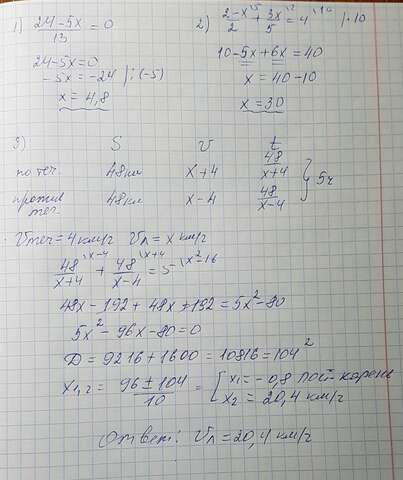 1) (24-5x)/13 = 0
24-5x=0
-5x=-24 | :(-5)
x=4,8
2) (2-x)/2 \5 + 3x/5 \2 = 4 \10 | ·10
10-5x+6x=40
x=40-10
x=30
3) S v t
по теч. 48км x+4 48/(x+4)
против теч. 48км x-4 48/(x-4) } 5ч
Vтеч=4км/ч Vл=x км/ч
48/(x+4) \x-4 + 48/(x-4) \x+4 = 5 \x²-16
48x-192+48x+192=5x²-80
5x²-96x-80=0
D=9216+1600=10816=104²
x1,2 = (96±104)/10 = [ x1=-0,8 пост. корень
x2=20,4 км/ч
Ответ: Vл=20,4 км/ч